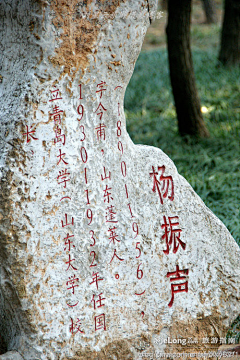 杨振声
（1890—1956），
字今甫，山东蓬莱人。
1930—1932年任国
立青岛大学（山东大学）校
长
eLong 旅游指南